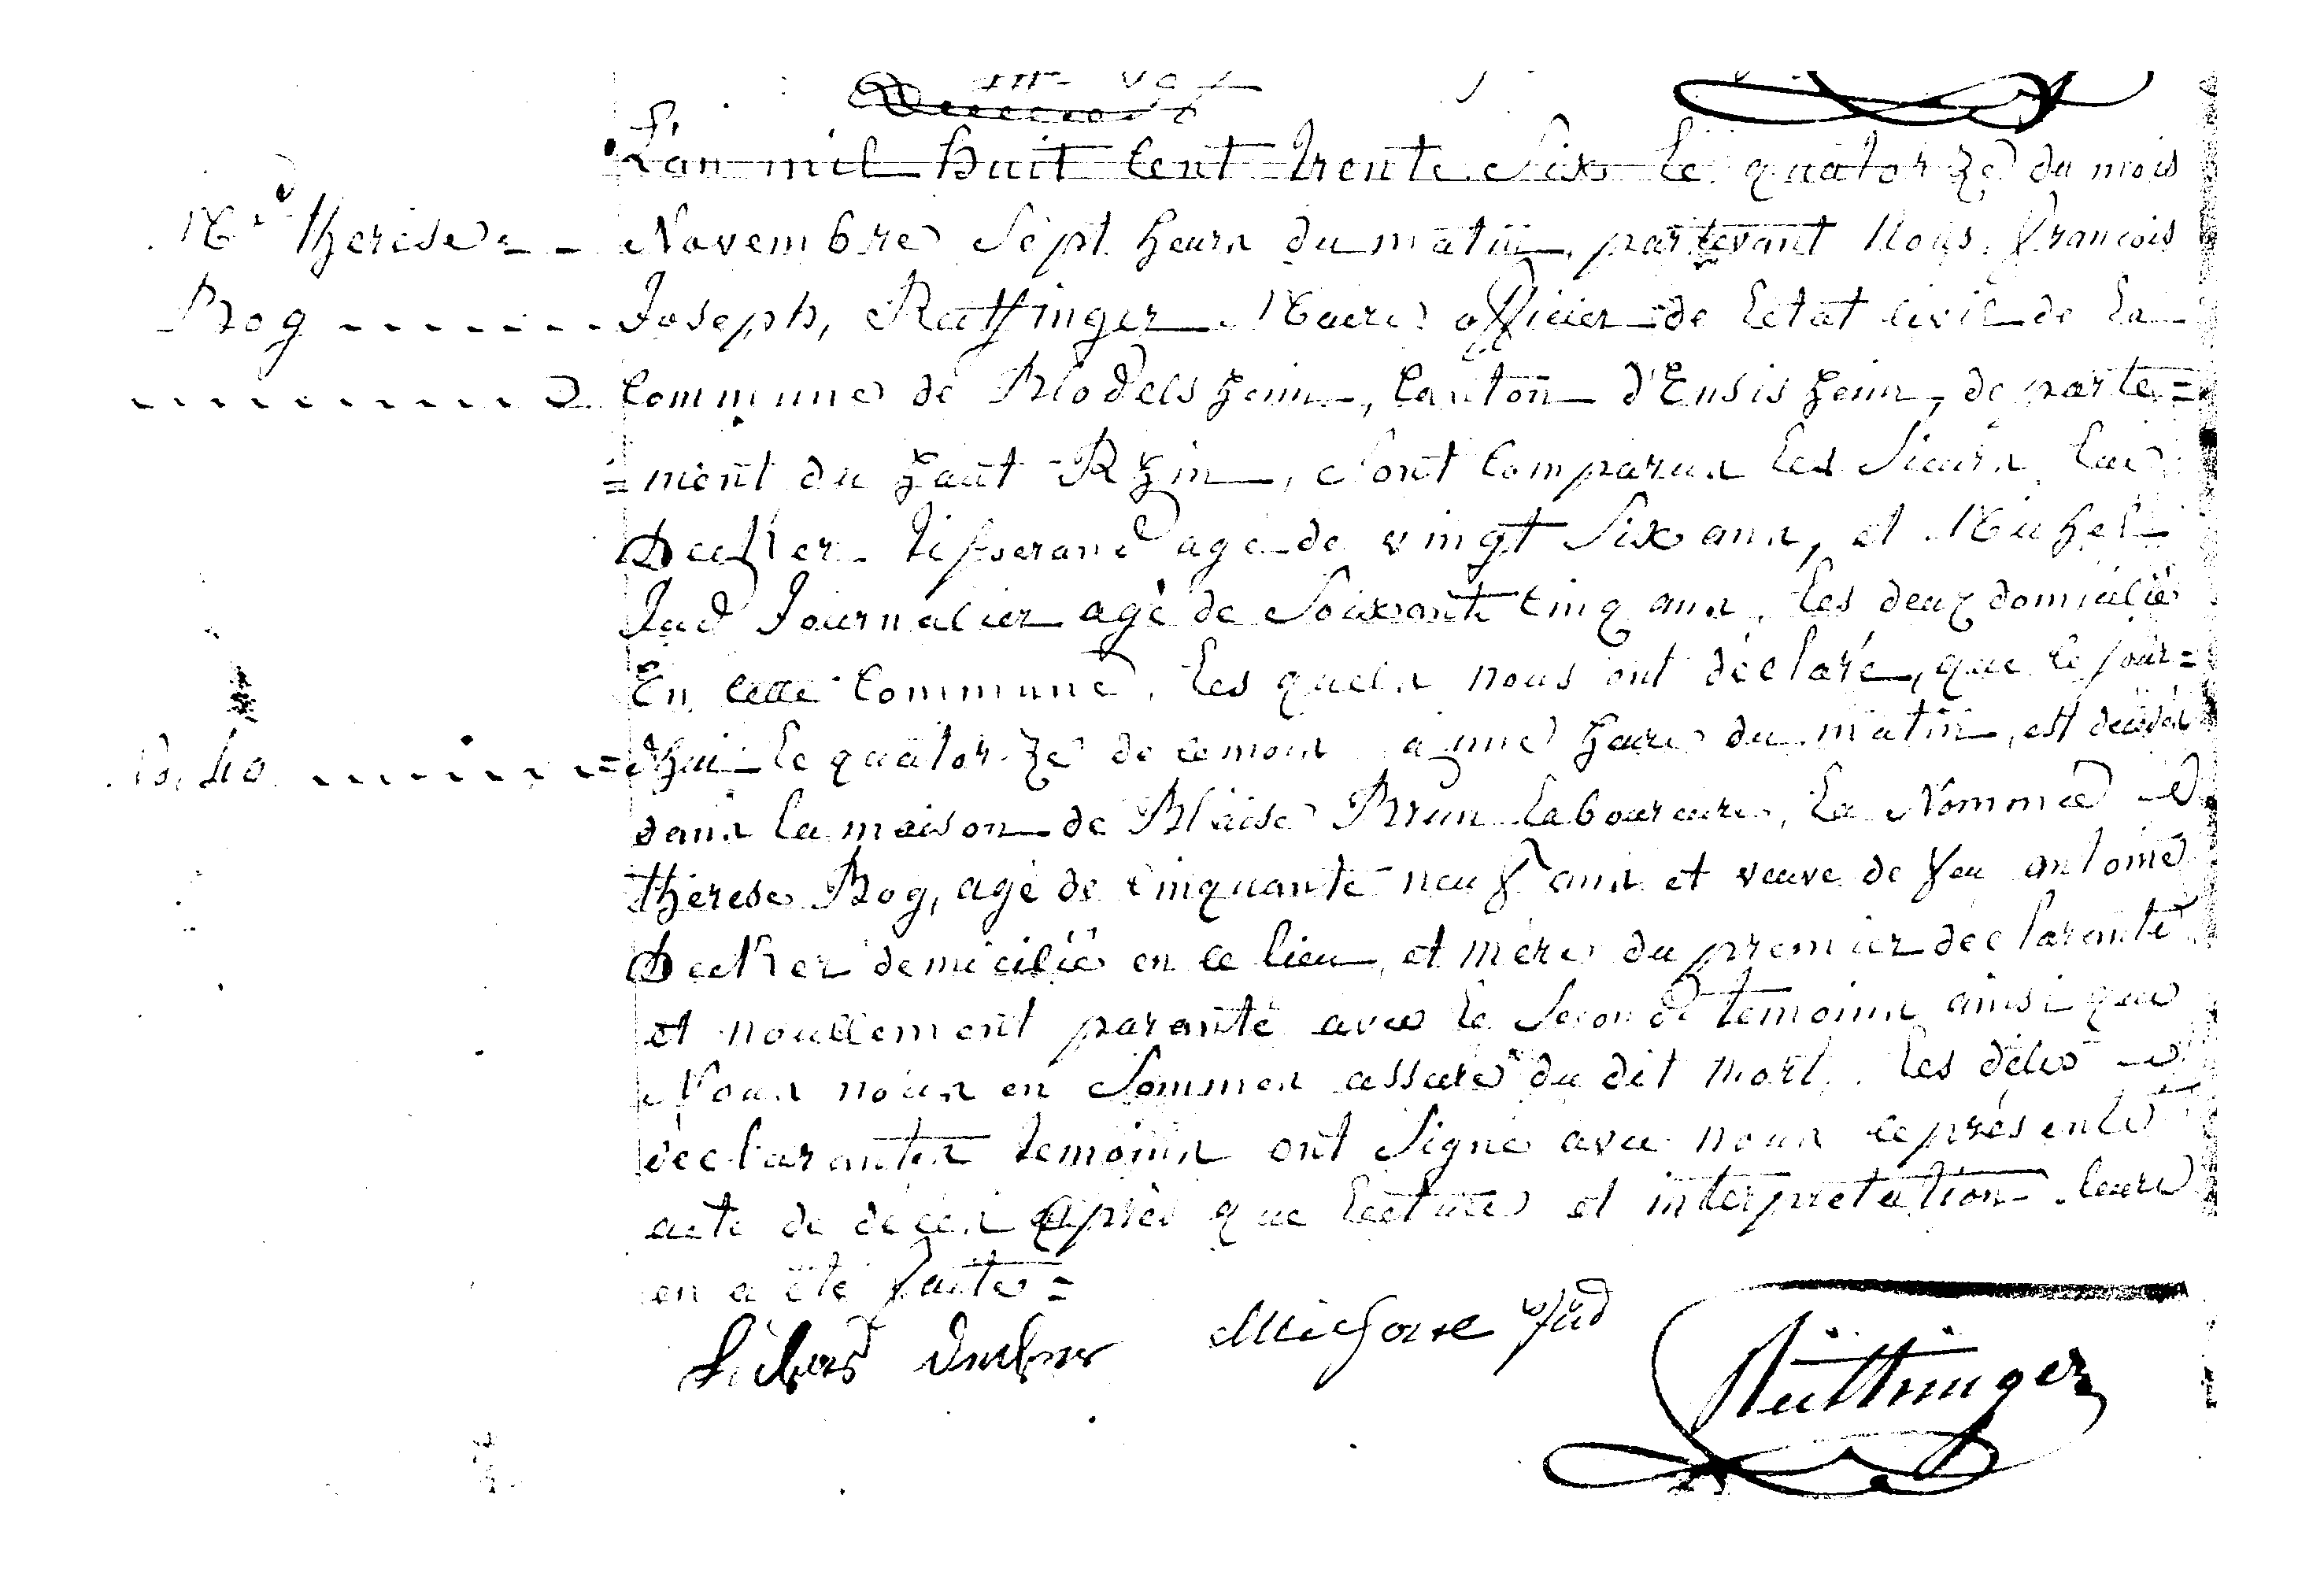 L'an mil huit Cent trente Six le quatorze du mois
Mie therese Novembre Sept heurs du matin, partevant Nous, francois
Bog Joseph, Rattinger Maire officier de l'etat civil de la
Commune de Blodelsheim, Canton d'Ensisheim, departe=
=ment du haut-Rhin, Sont Comparus les Sieurs
Decker tisserand agé de vingt Six ans, et Michel
Jud Journalier agé de Soixante Cinq ans, les deux domicilié
En cette Commune, les quels nous ont déclaré, que le jour=
=dhui le quatorze de ce mois a une heure du matin, est décédé
dans la maison de Blaise Brun laboureure, la Nommée
thérese Bog, agé de Cinquante neuf ans et veuve de feu antoine
Decker domicilié en ce lieu, et mère du premier déclarante
et noullement parenté avec le Second temoins ainsi que
Nous nous en Sommes assuré du dit mort. les
déclarantes temoins ont Signé avec nous ce présente
acte de décès après que lecture et interpretation leure
en a été faite=
Decker Michael Jud
Rättinger